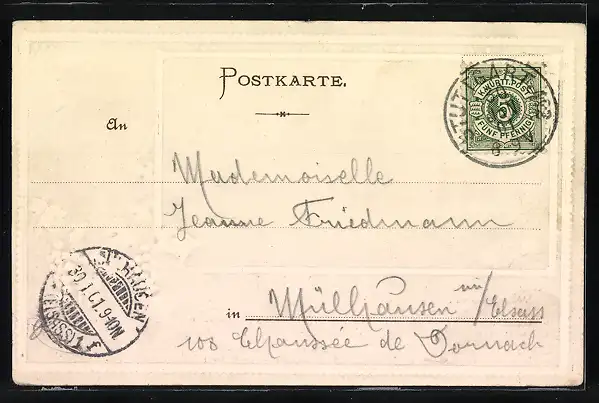 POSTKARTE.
STUTTGART
K. WÜRTT. POST
5
FÜNF PFENNIG
8-9
An
Mademoiselle
Jeanne Friedmann
MÜLHAUSEN
30.1.01.9-10N
(ELSASS) 1
in Mülhausen Elsass
108 Chaussée de Dornach